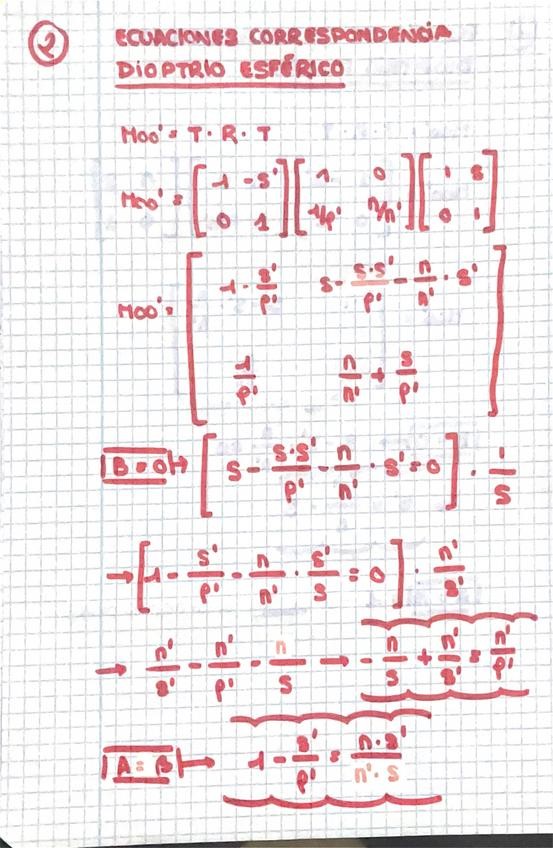 2 ECUACIONES CORRESPONDENCIA
DIOPTRIO ESFÉRICO
Moo' = T · R · T
Moo' = [ 1 -s' ; 0 1 ] [ 1 0 ; 1/p' n/n' ] [ 1 s ; 0 1 ]
Moo' = [ 1 - s'/p' s - s·s'/p' - n/n' · s' ; 1/p' n/n' + s/p' ]
B = 0 → [ s - s·s'/p' - n/n' · s' = 0 ] · 1/s
→ [ 1 - s'/p' - n/n' · s'/s = 0 ] · n'/s'
→ n'/s' - n'/p' - n/s → - n/s + n'/s' = n'/p'
A = β → 1 - s'/p' = n·s'/n'·s